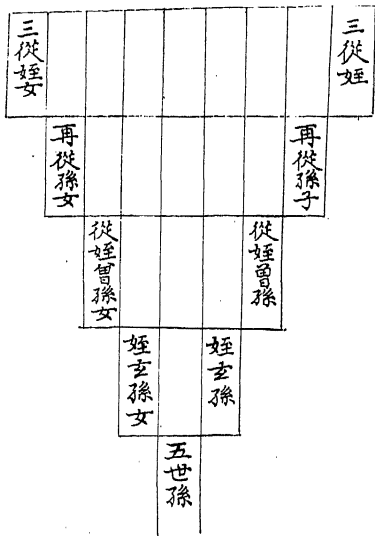 三從姪
三從姪女
再從孫子
再從孫女
從姪曾孫
從姪曾孫女
姪玄孫
姪玄孫女
五世孫